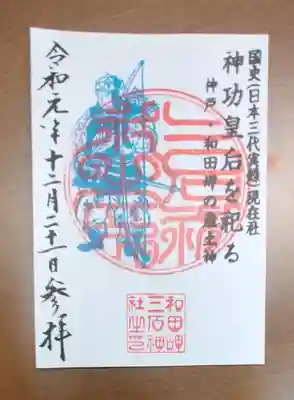 国史(日本三代実録)現在社
神功皇后を祀る
神戸・和田岬の産土神
三石神社
令和元年十二月二十一日参拝
和田岬
三石神
社之印